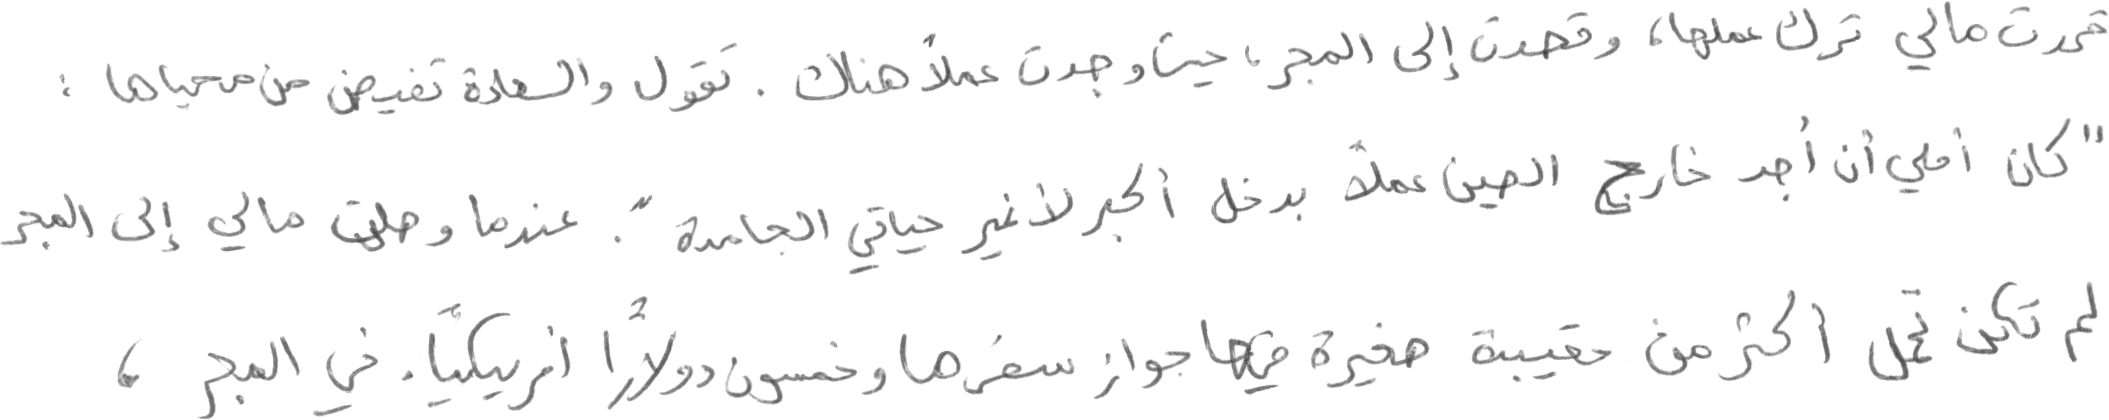 قررت مالي ترك عملها، وقصدت إلى المجر، حيث وجدت عملاً هناك. تقول والسعادة تفيض من محياها:
"كان أملي أن أجد خارج الصين عملاً بدخل أكبر لأغير حياتي الجامدة". عندما وصلت مالي إلى المجر
لم تكن تحمل أكثر من حقيبة صغيرة فيها جواز سفرها وخمسون دولارًا أمريكيًا. في المجر،